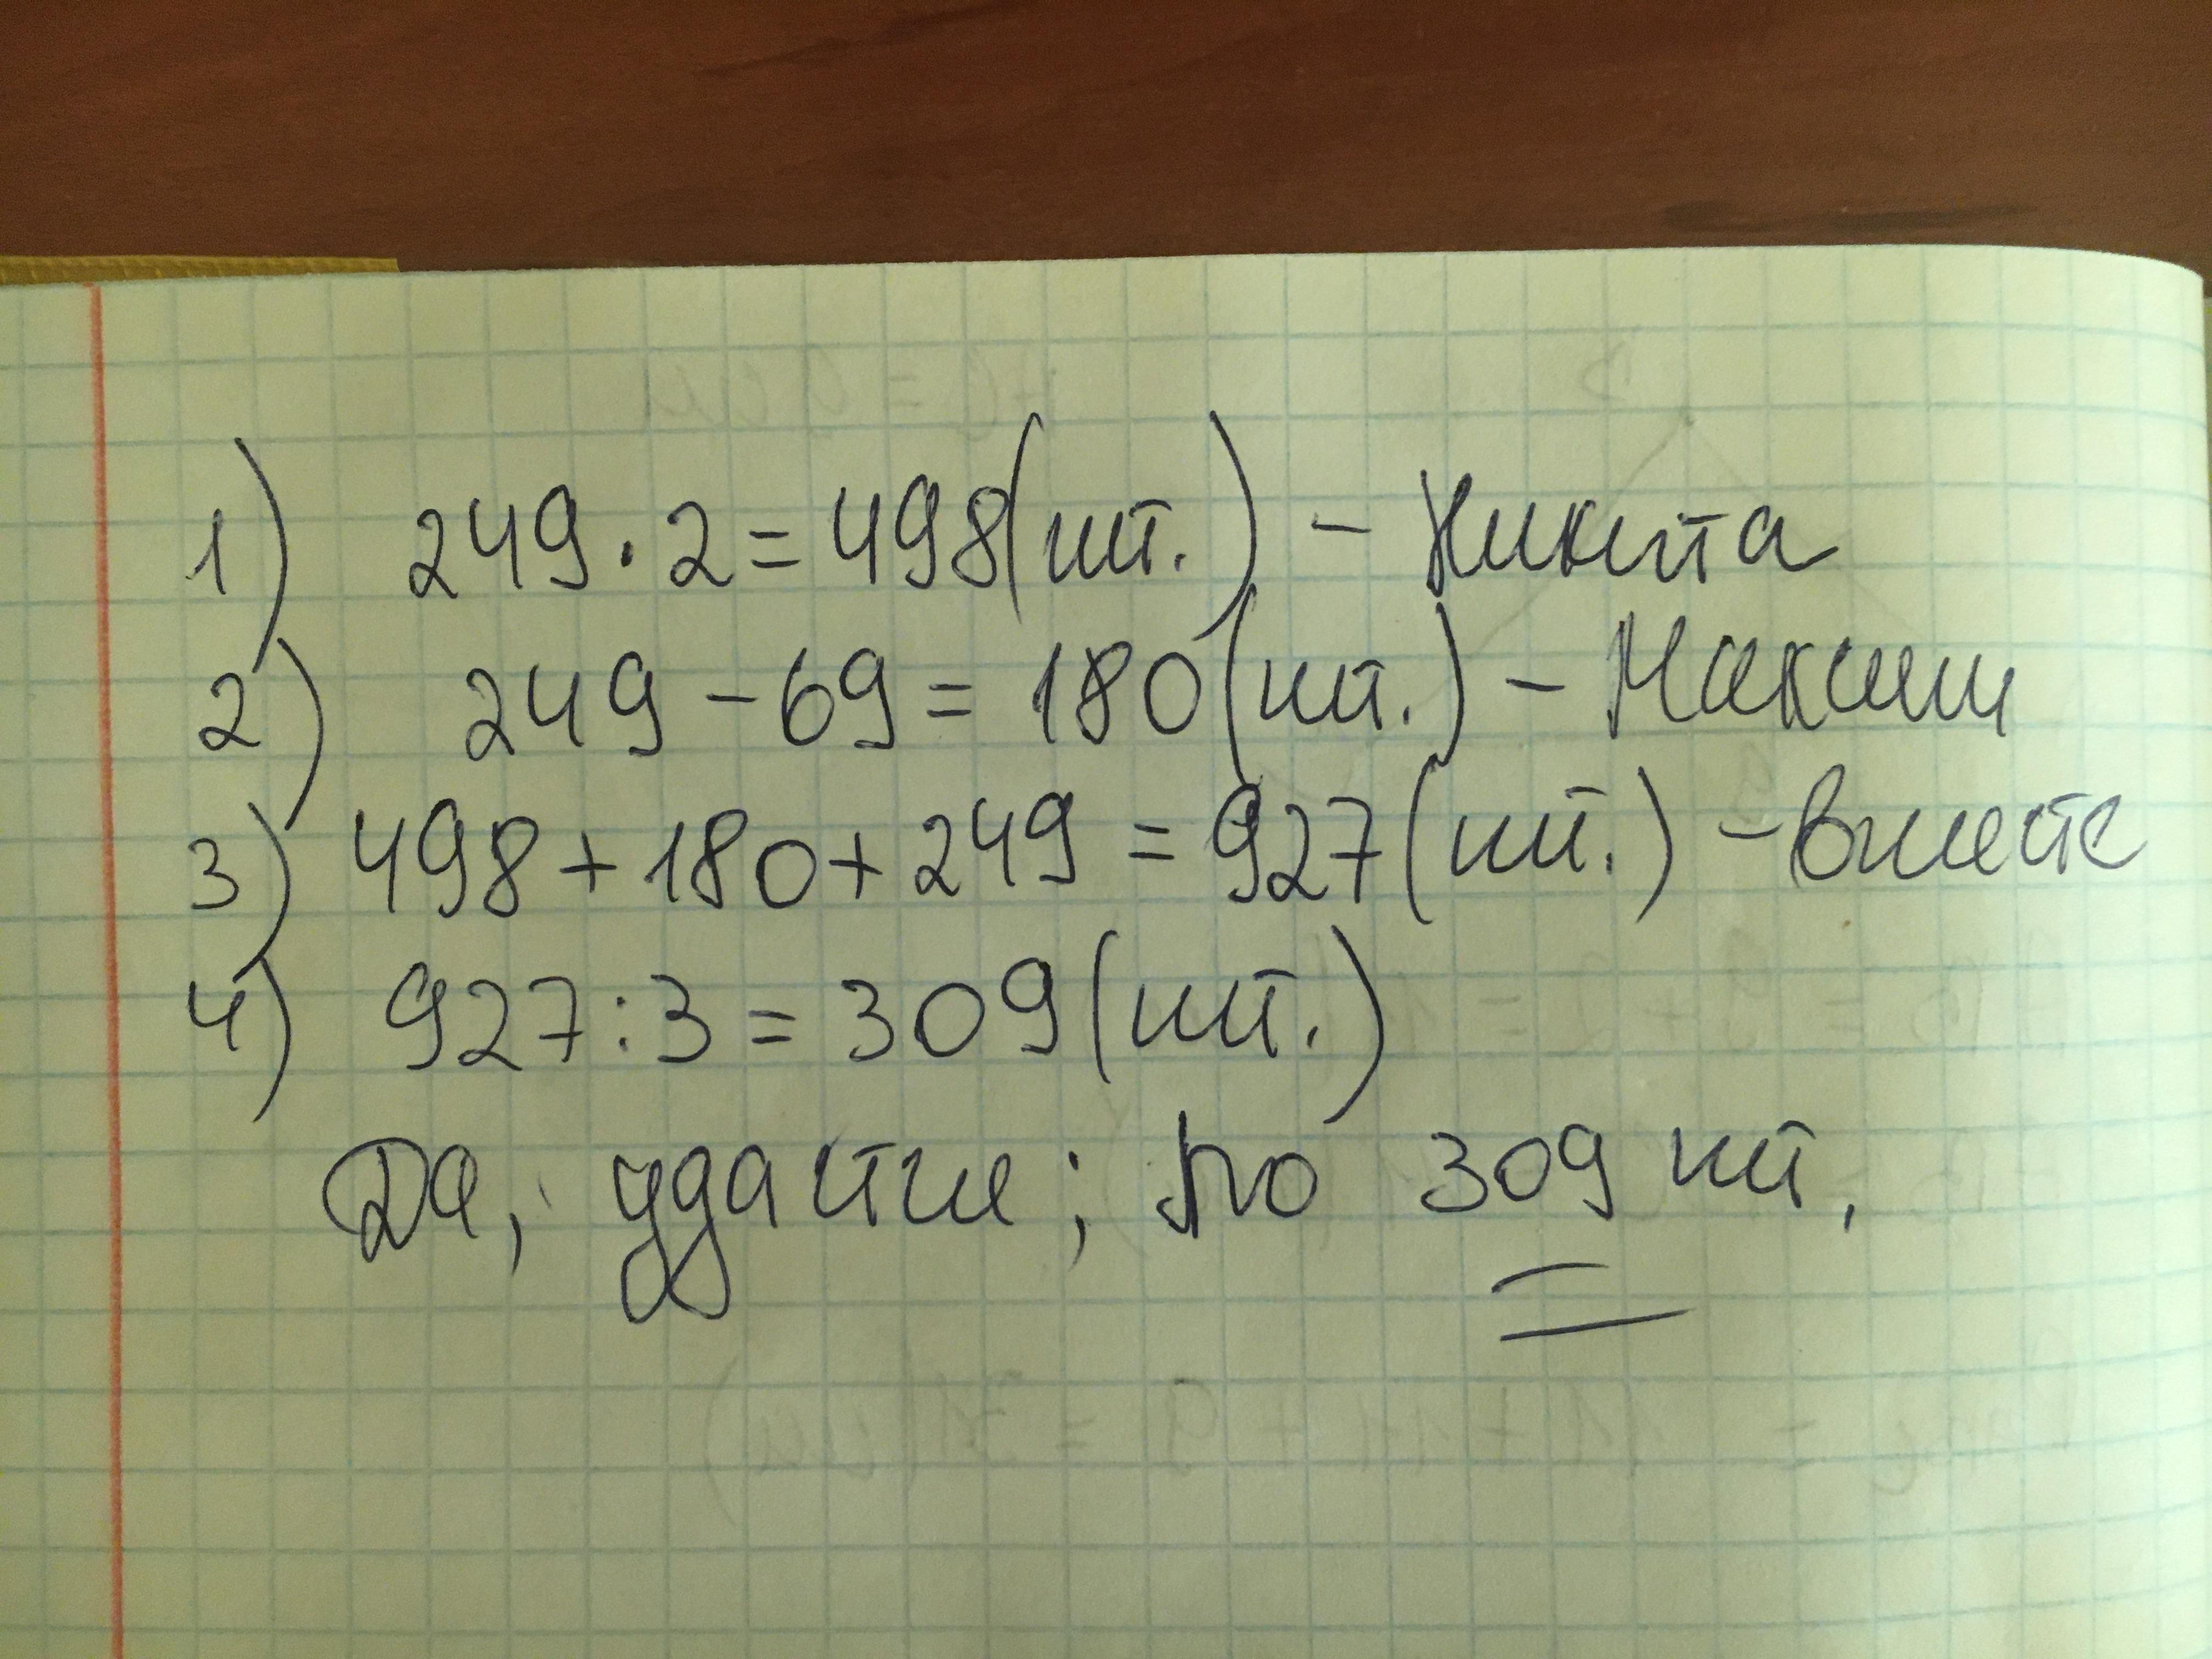 1) 249 · 2 = 498 (шт.) – Никита
2) 249 – 69 = 180 (шт.) – Максим
3) 498 + 180 + 249 = 927 (шт.) – вместе
4) 927 : 3 = 309 (шт.)
Да, удастся; по 309 шт.